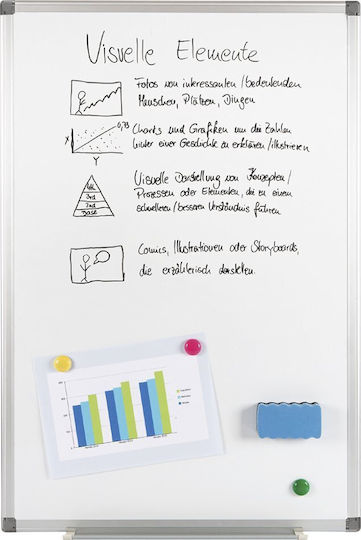 Visuelle Elemente
Fotos von interessanten / bedeutenden
Menschen, Plätzen, Dingen
0,73
X
Y
Charts und Grafiken um die Zahlen
hinter einer Geschichte zu erklären / illustrieren
4th
3rd
2nd
Base
Visuelle Darstellung von Konzepten /
Prozessen oder Elementen, die zu einem
schnelleren / besseren Verständnis führen
Comics, Illustrationen oder Storyboards,
die erzählerisch darstellen.